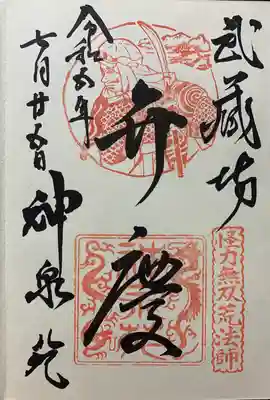 武蔵坊
怪力無双荒法師
弁慶
令和五年
七月廿五日
神泉苑